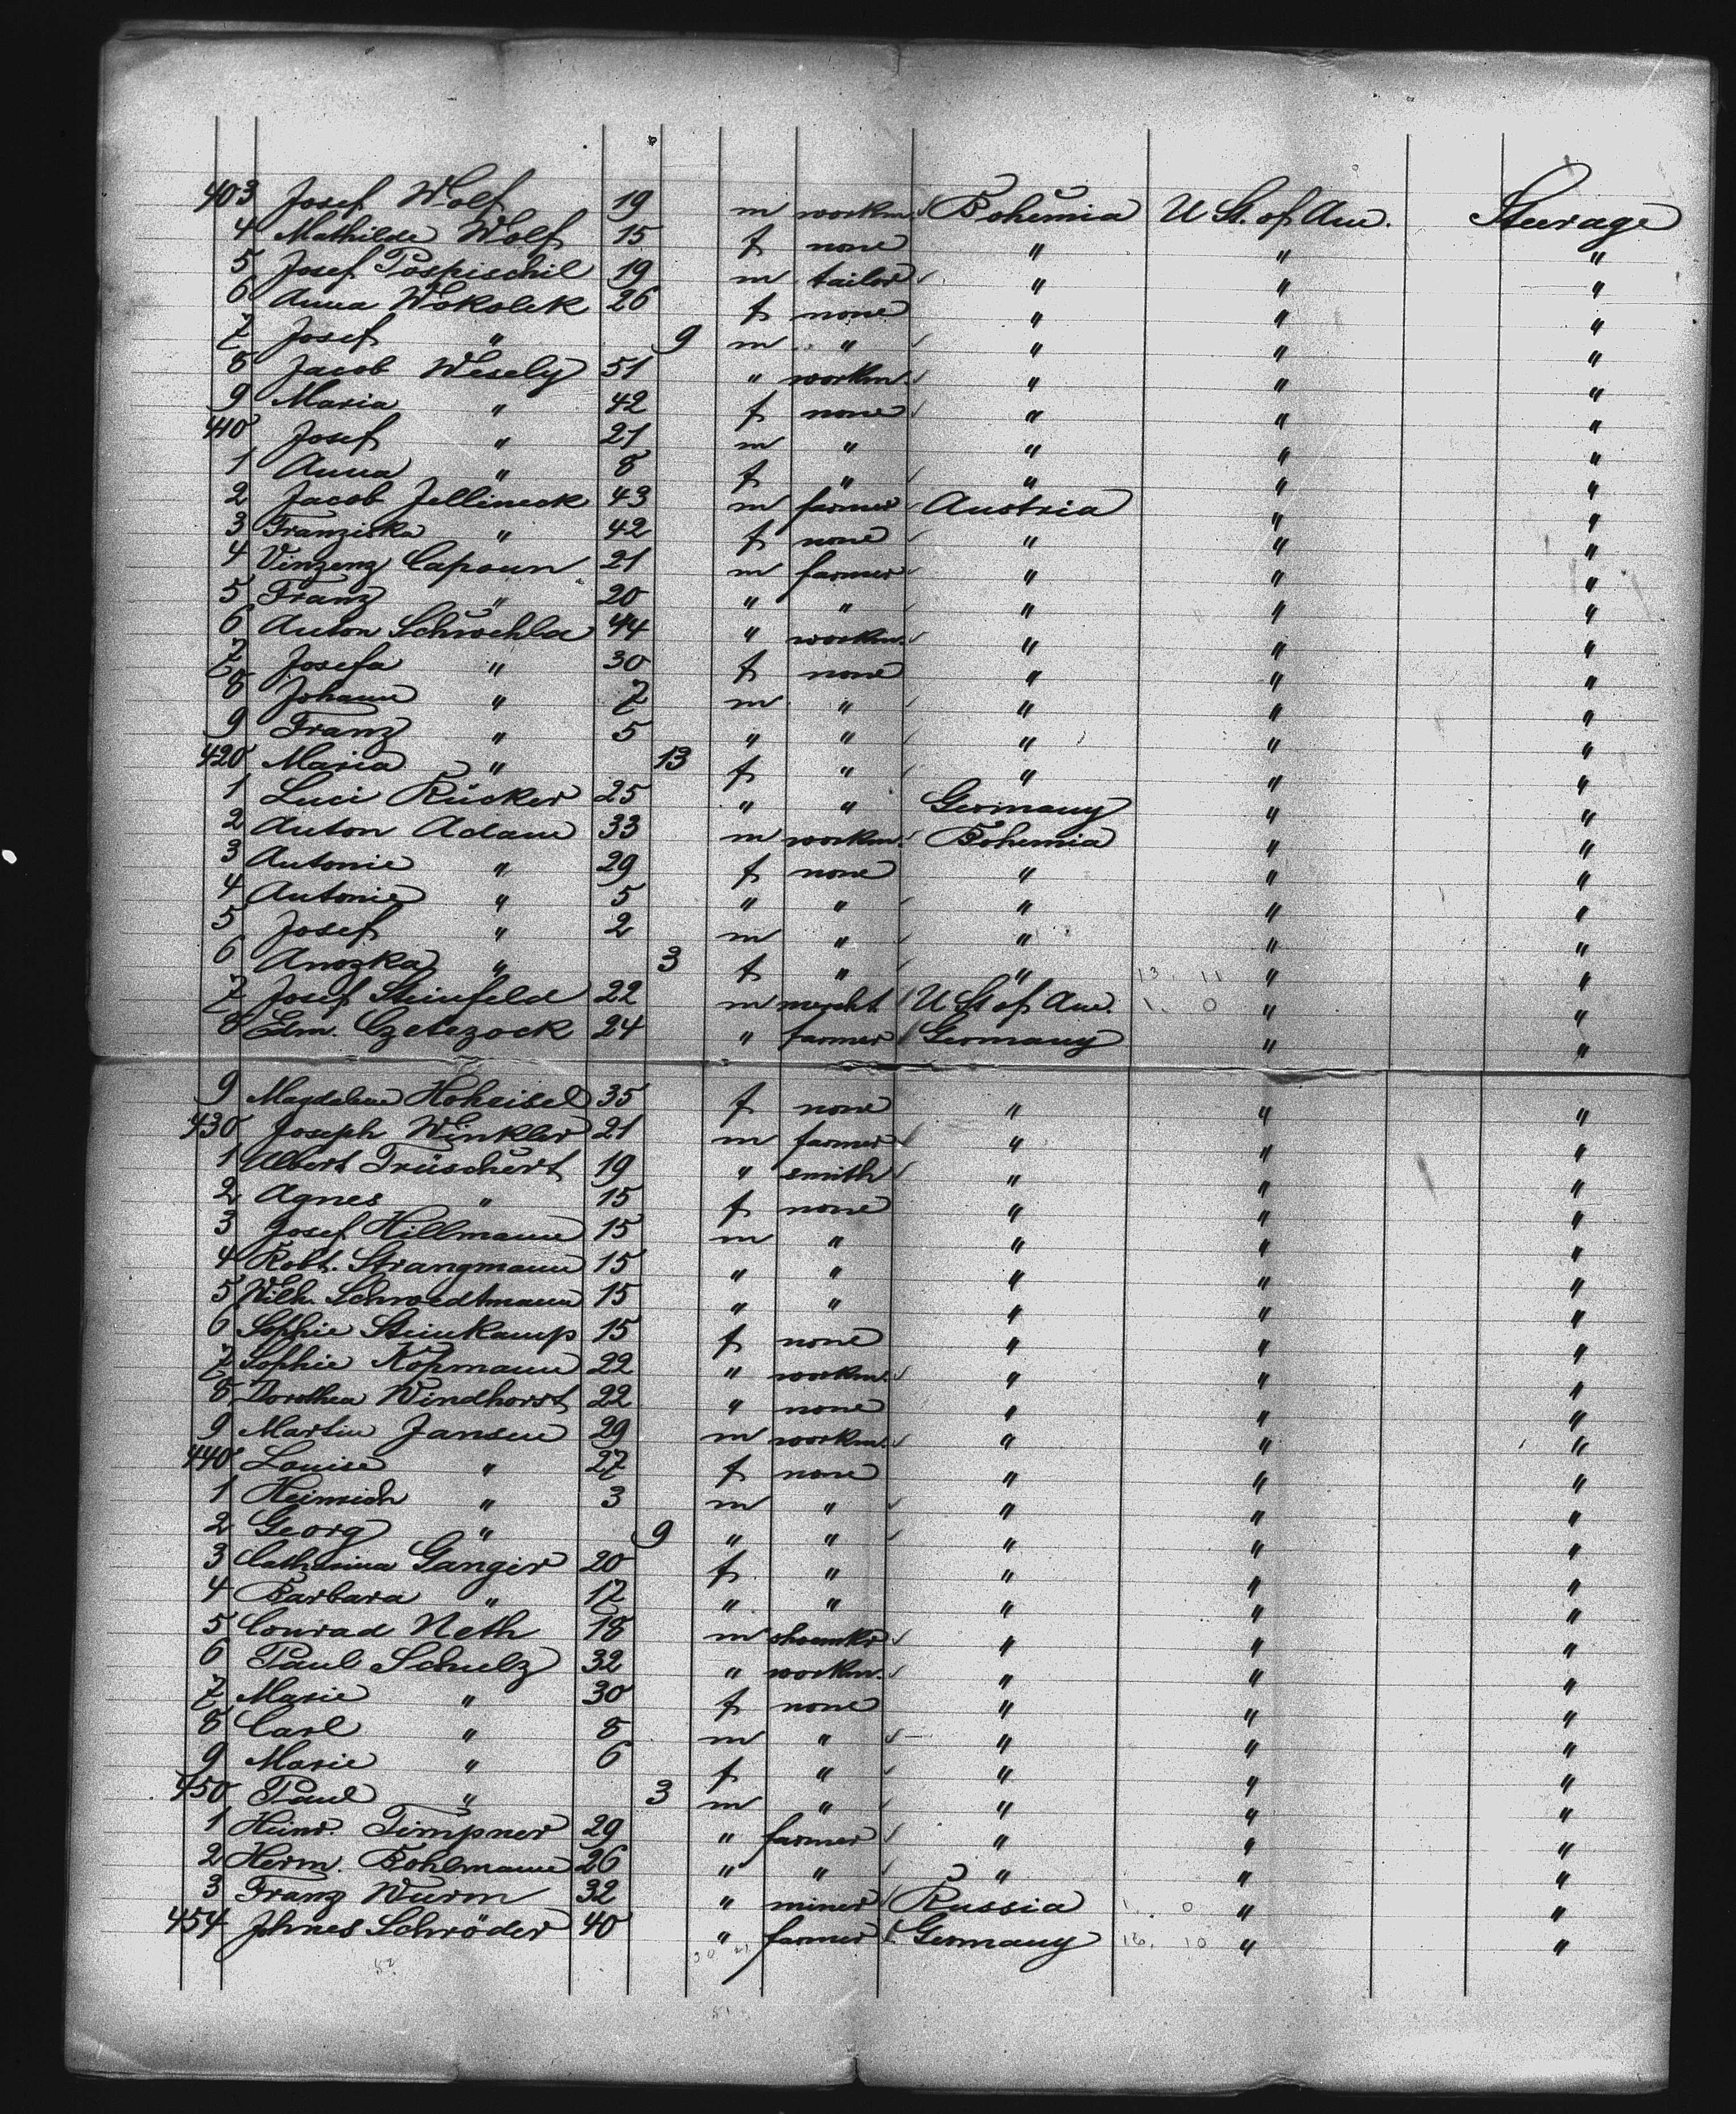 403 Josef Wolf 19 m workm. Bohemia U St. of Am. Steerage
4 Mathilde Wolf 15 f none " " "
5 Josef Pospischil 19 m tailor " " "
6 Anna Wokolek 26 f none " " "
7 Josef " 9 m " " " "
8 Jacob Wesely 51 " workm. " " "
9 Maria " 42 f none " " "
410 Josef " 21 m " " " "
1 Anna " 8 f " " " "
2 Jacob Jellineck 43 m farmer Austria " "
3 Franziska " 42 f none " " "
4 Vinzenz Capoun 21 m farmer " " "
5 Franz " 20 " " " " "
6 Anton Schwehla 44 " workm. " " "
7 Josefa " 30 f none " " "
8 Johann " 7 m " " " "
9 Franz " 5 " " " " "
420 Maria " 13 f " " " "
1 Luci Rücker 25 " " Germany " "
2 Anton Adam 33 m workm. Bohemia " "
3 Antonie " 29 f none " " "
4 Antonie " 5 " " " " "
5 Josef " 2 m " " " "
6 Anozka " 3 f " " 13. 11 " "
7 Josef Steinfeld 22 m mercht. U St of Am. 1. 0 " "
8 Edm. Czetezock 24 " farmer Germany " "
9 Magdalene Hoheisel 35 f none " " "
430 Joseph Winkler 21 m farmer " " "
1 Albert Trüschert 19 " smith " " "
2 Agnes " 15 f none " " "
3 Josef Hillmann 15 m " " " "
4 Robt. Strangmann 15 " " " " "
5 Wilh. Schwedtmann 15 " " " " "
6 Sophie Steinkamp 15 f none " " "
7 Sophie Kopmann 22 " workm. " " "
8 Dorothea Windhorst 22 " none " " "
9 Martin Jansen 29 m workm. " " "
440 Louise " 27 f none " " "
1 Heinrich " 3 m " " " "
2 Georg " 9 " " " " "
3 Catharina Ganger 20 f " " " "
4 Barbara " 17 " " " " "
5 Conrad Neth 18 m shoemkr " " "
6 Paul Schulz 32 " workm. " " "
7 Marie " 30 f none " " "
8 Carl " 8 m " " " "
9 Marie " 6 f " " " "
450 Paul " 3 m " " " "
1 Heinr. Timpner 29 " farmer " " "
2 Herm. Bohlmann 26 " " " " "
3 Franz Wurm 32 " miner Russia 1. 0 " "
454 Jhnes Schröder 40 " farmer Germany 16. 10 " "